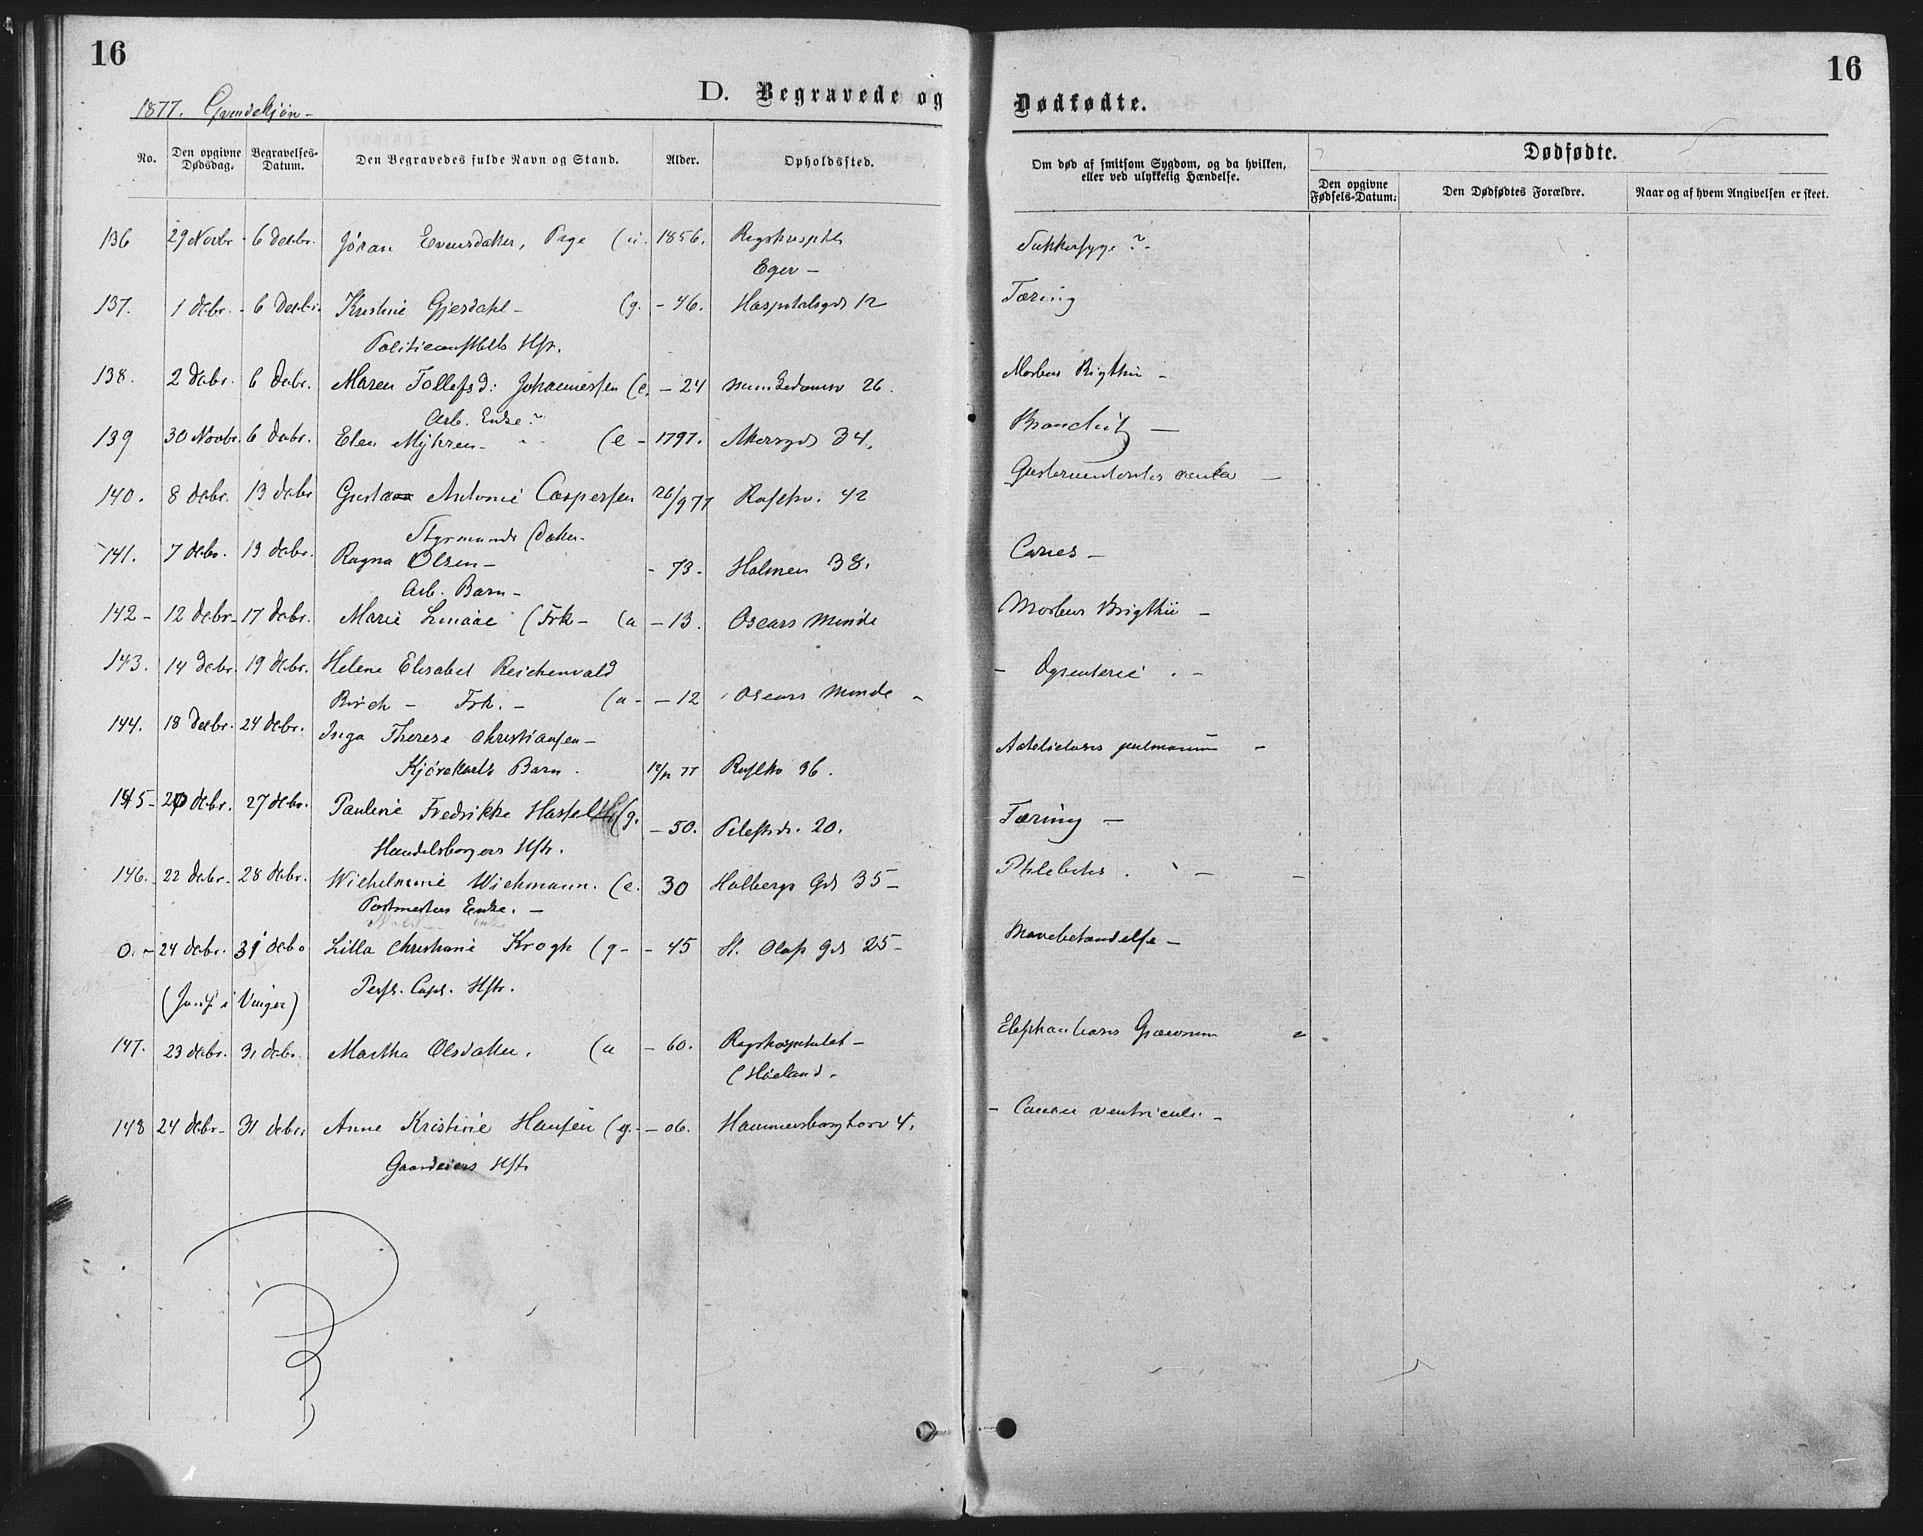 16
16
D. Begravede og Dødfødte.
1877.
No. Den opgivne Dødsdag. Begravelses-Datum. Den Begravedes fulde Navn og Stand. Alder. Opholdssted. Om død af smitsom Sygdom, og da hvilken, eller ved ulykkelig Hændelse. Dødfødte.
Den opgivne Fødsels-Datum: Den Dødfødtes Forældre. Naar og af hvem Angivelsen er skeet.
136 29 Novbr 6 Decbr. Jøran Evensdatter, Pige 1856. Rigshospitl Sukkersyge ?
Eger –
137. 1 Decbr. 6 Decbr. Kristine Gjerdahl – (g. – 46. Hospitalsgd 12 Tæring
Hstr.
138. 2 Decbr. 6 Decbr. Maren Tollefsd: Johannessen (e. – 24 26. Morbus Brigthii –
Arb. Enke
139 30 Novbr. 6 Decbr. Elen Myhren – (e – 1797. Akersgd 34. Bronchit –
140. 8 Decbr. 13 Decbr Antonie Caspersen 26/9 77 42
Styrmands Datter
141. 7 Decbr. 13 Decbr. Ragna Olsen – – 73. Holmen 38. Caries –
Arb. Barn –
142 – 12 Decbr – 17 Decbr. Marie (Frk – (u – 13. Oscars Minde Morbus Brigthii –
143. 14 Decbr. 19 Decbr. Helene Elisabet Reichenvald – Dysenterie . –
Birch – Frk. – (u – – 12 Oscars Minde –
144. 18 Decbr. 24 Decbr. Inga Therese Christiansen – Atelectasis pulmonum –
Kjørekarls Barn . 12/12 77 36.
145 – 20 Decbr. 27 Decbr. Pauline Fredrikke (g. – 50. Pilestr. 20. Tæring –
Handelsborgers Hstr.
146. 22 Decbr. 28 Decbr. Wilhelmine Wichmann. (e. 30 Holbergs Gd 35 – Phlebitis . –
Postmesters Enke. –
0. – 24 Decbr. 31 Decbr Lilla Christiane Krogh (g – – 45 St. Olafs gd 25 – Mavebetændelse –
(Jordf. i Vinger) Capt. Hstr.
147. 23 Decbr. 31 Decbr. Martha Olsdatter. (u – 60. Rigshospitalet – Elephantiasis Græcorum
(Høland.
148 24 Decbr – 31 Decbr. Anne Kristine Hansen (g. – – 06. Hammersborg torv 4. – Cancer ventriculi –
Gaardeiers Hstr